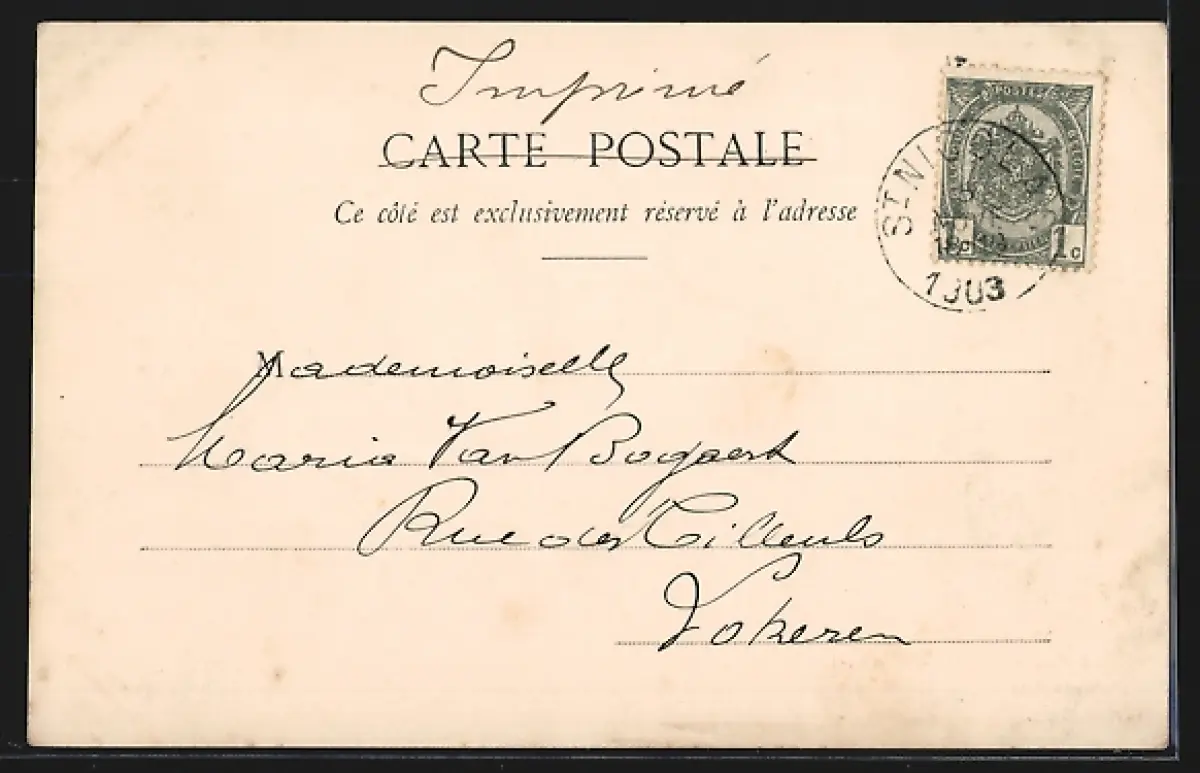 Imprimé
CARTE POSTALE
Ce côté est exclusivement réservé à l'adresse
POSTES
ST NICOLA
1c 1c
1903
Mademoiselle
Maria Van Bogaert
Rue des Tilleuls
Lokeren